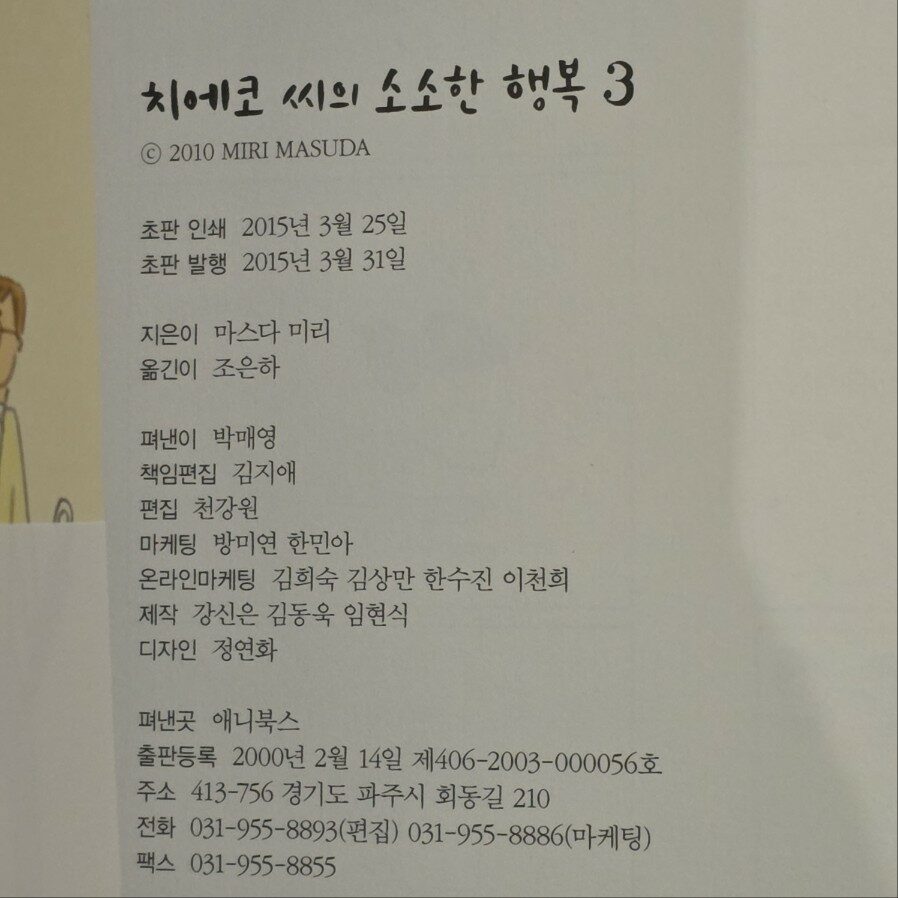 치에코 씨의 소소한 행복 3
ⓒ 2010 MIRI MASUDA
초판 인쇄 2015년 3월 25일
초판 발행 2015년 3월 31일
지은이 마스다 미리
옮긴이 조은하
펴낸이 박매영
책임편집 김지애
편집 천강원
마케팅 방미연 한민아
온라인마케팅 김희숙 김상만 한수진 이천희
제작 강신은 김동욱 임현식
디자인 정연화
펴낸곳 애니북스
출판등록 2000년 2월 14일 제406-2003-000056호
주소 413-756 경기도 파주시 회동길 210
전화 031-955-8893(편집) 031-955-8886(마케팅)
팩스 031-955-8855